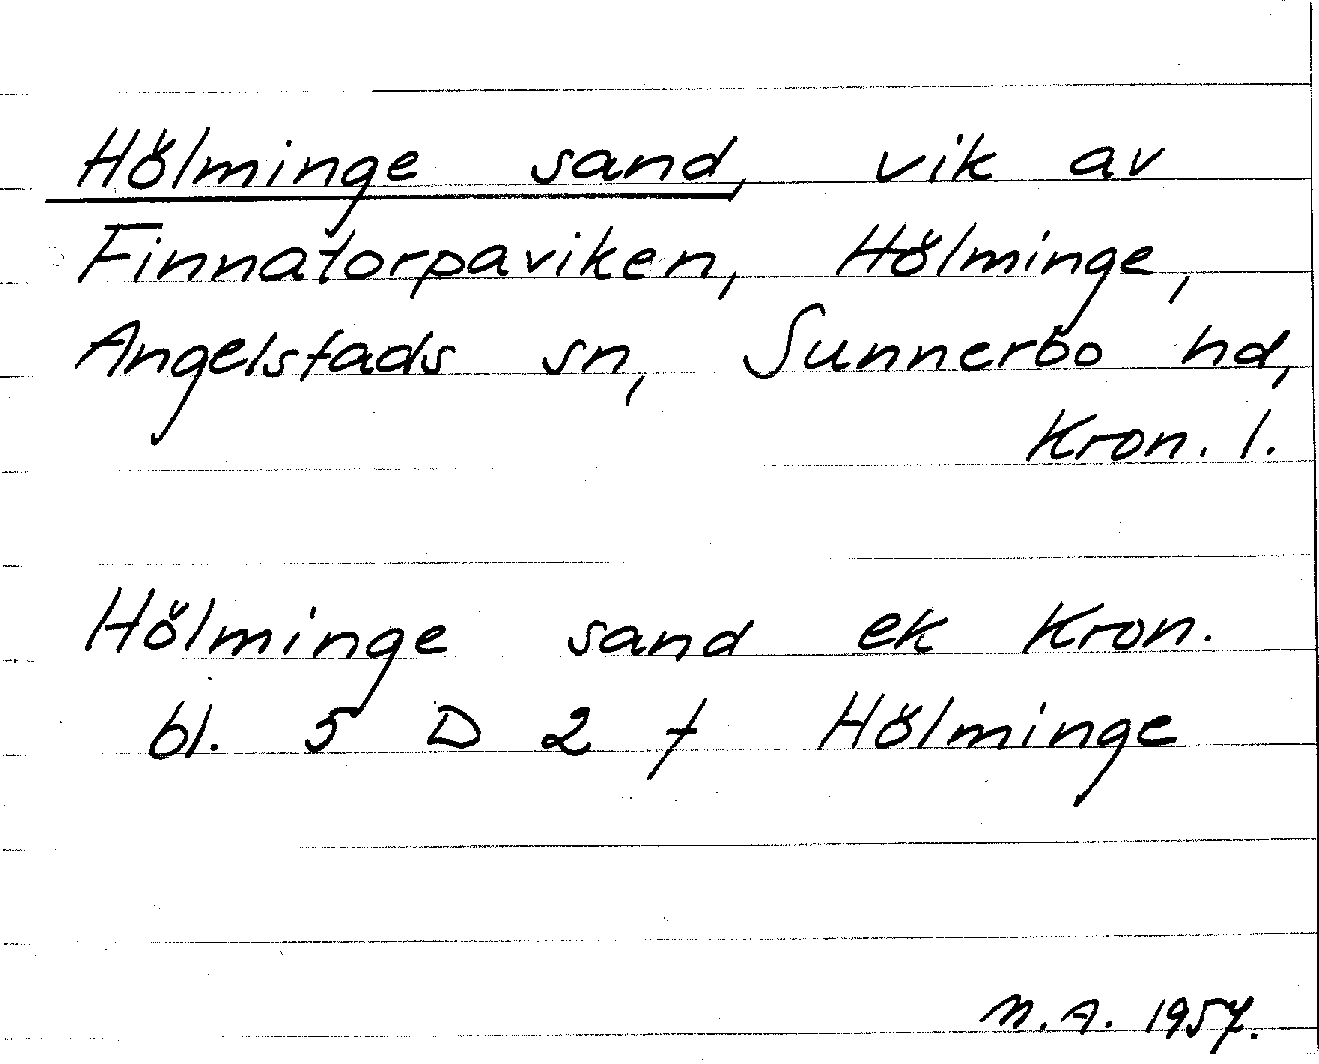 Hölminge sand, vik av
Finnatorpaviken, Hölminge,
Angelstads sn, Sunnerbo hd,
Kron. l.
Hölminge sand ek Kron.
bl. 5 D 2 f Hölminge
N.A. 1957.